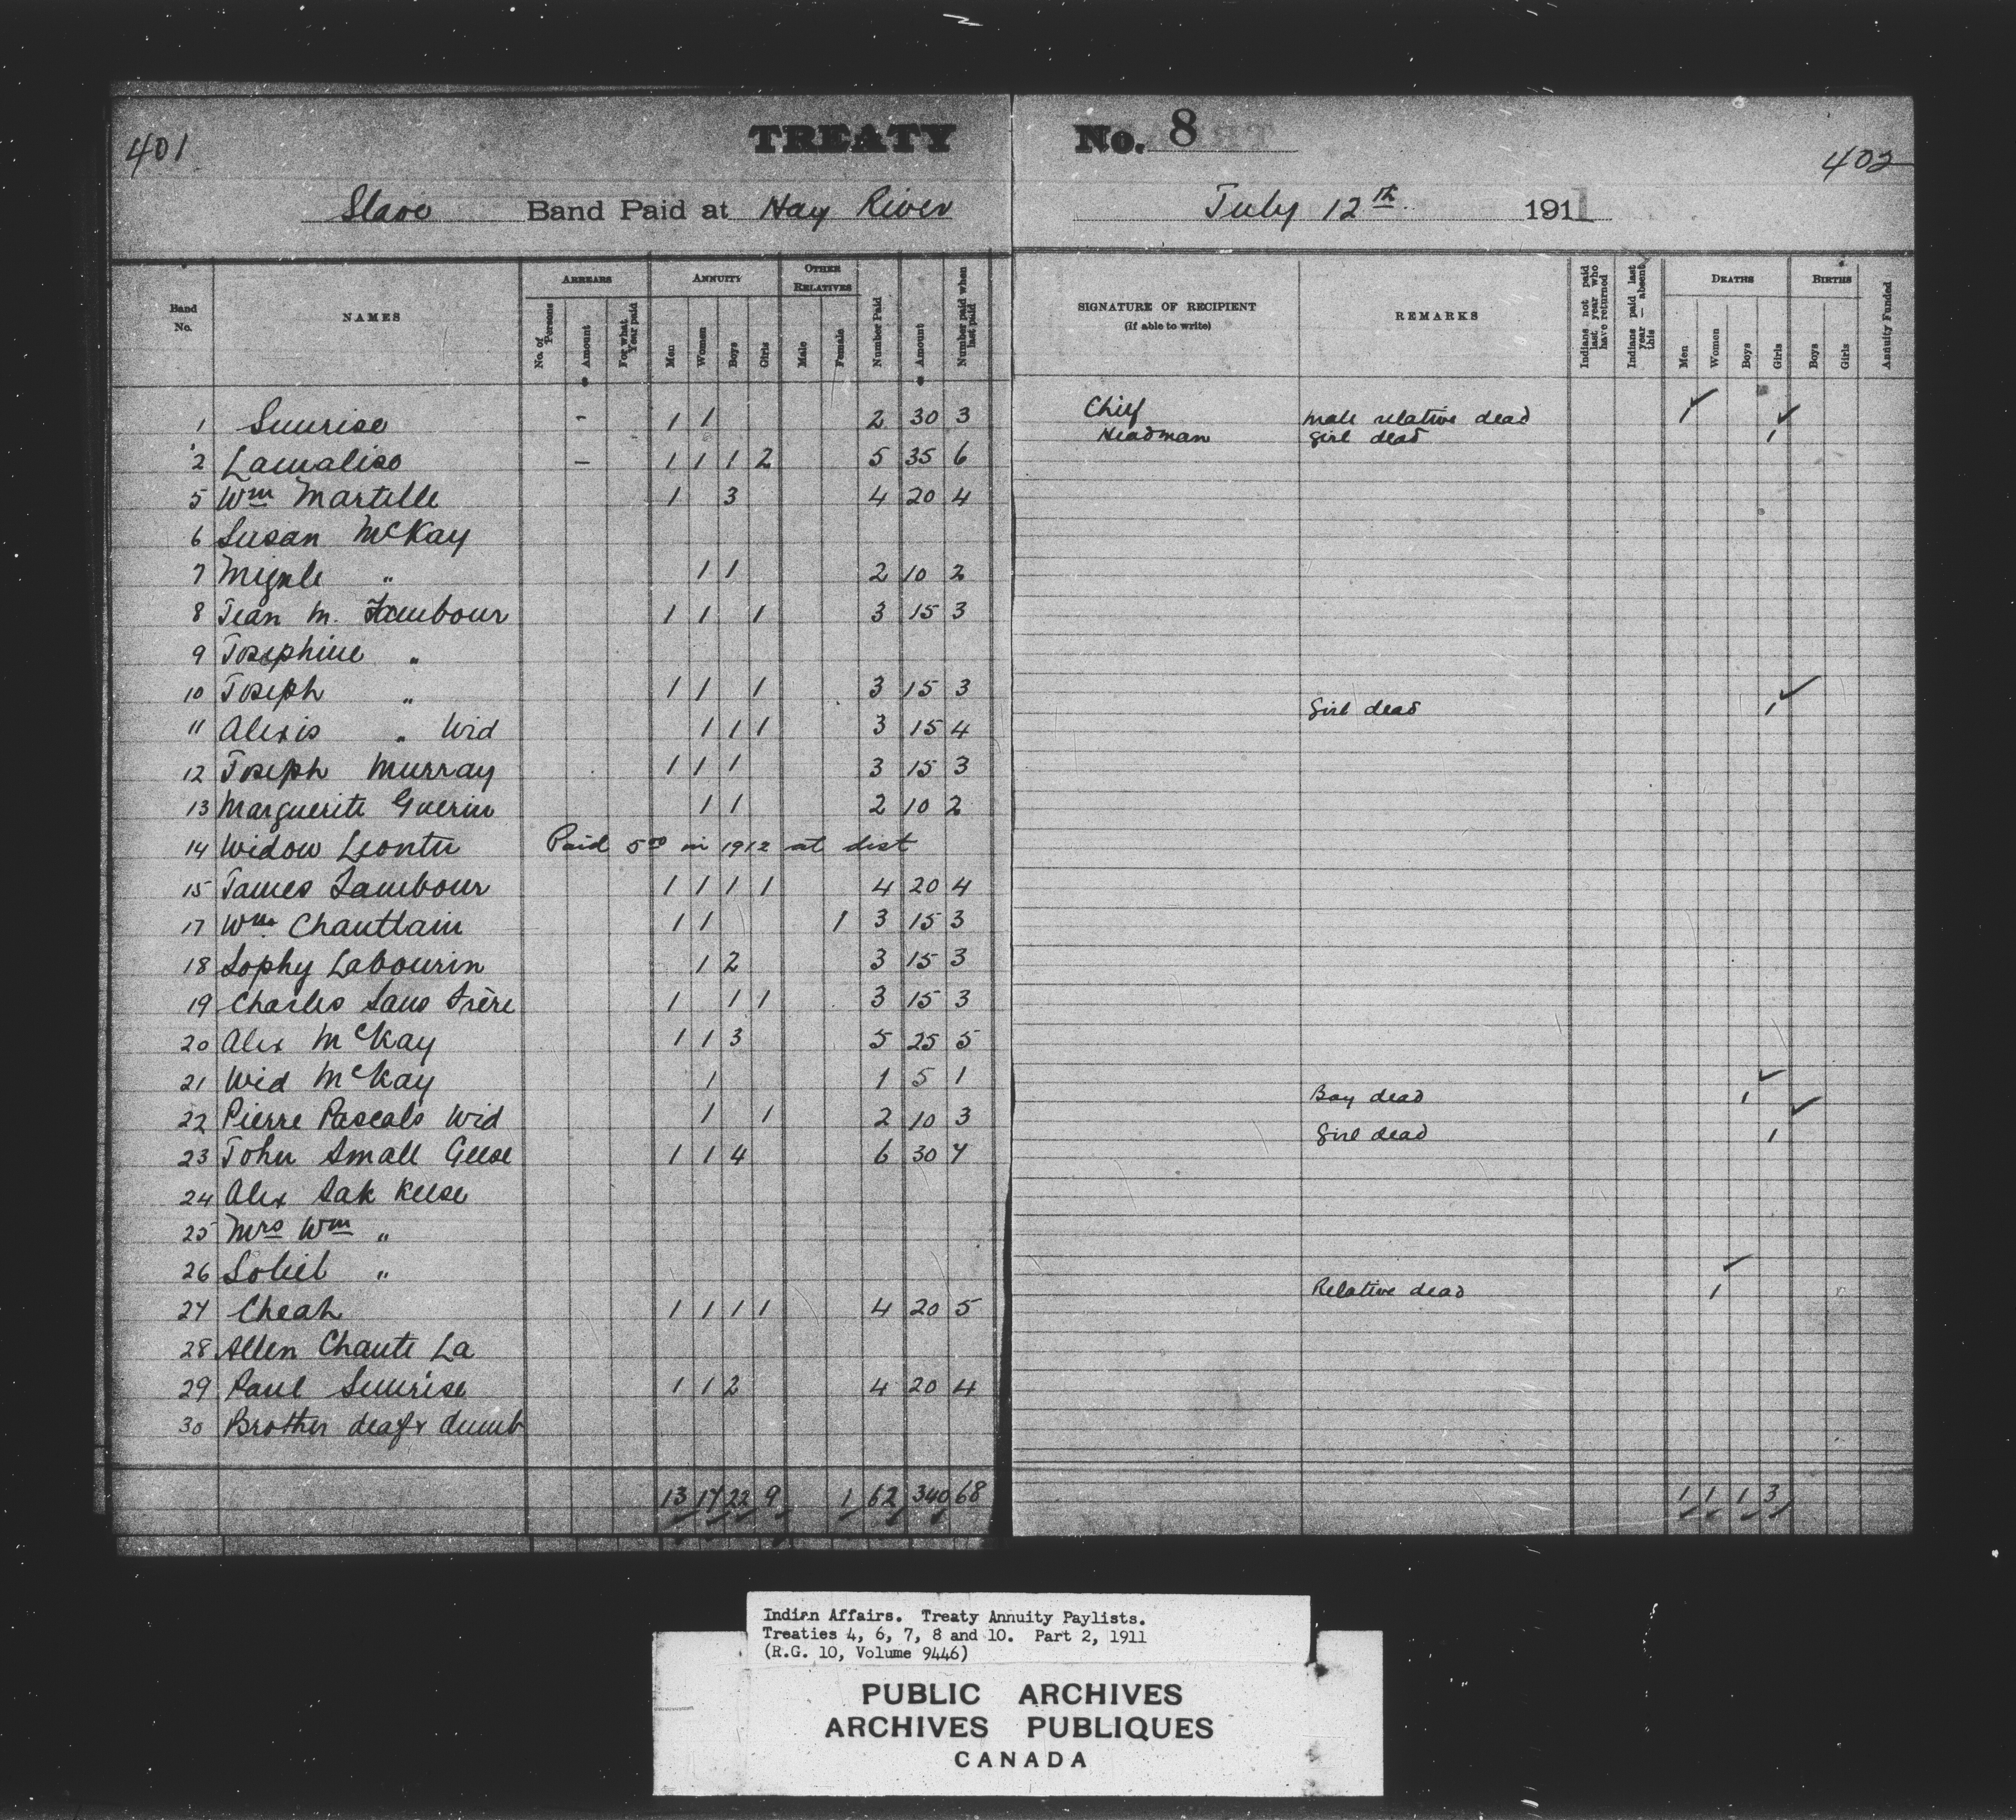 401
TREATY No. 8
402
Slave Band Paid at Hay River July 12th 1911
Band No. NAMES ARREARS ANNUITY OTHER RELATIVES SIGNATURE OF RECIPIENT (if able to write) REMARKS DEATHS BIRTHS
No. of Persons Amount For what Year paid Men Women Boys Girls Male Female Number Paid Amount Number paid when last paid Indians not paid last year who have returned Indians paid last year — absent this Men Women Boys Girls Boys Girls Annuity Funded
1 Sunrise - 1 1 2 30 3 Chief male relative dead 1
2 Lamaliso - 1 1 1 2 5 35 6 Headman girl dead 1
5 Wm Martelle 1 3 4 20 4
6 Susan McKay
7 " 1 1 2 10 2
8 Jean M. Tambour 1 1 1 3 15 3
9 Josephine "
10 Joseph " 1 1 1 3 15 3
11 Alexis " Wid 1 1 1 3 15 4 Girl dead 1
12 Joseph Murray 1 1 1 3 15 3
13 Marguerite Guerin 1 1 2 10 2
14 Widow Leontu Paid 5.00 in 1912 at dist
15 James Tambour 1 1 1 1 4 20 4
17 Wm Chantlain 1 1 1 3 15 3
18 Sophy Labourin 1 2 3 15 3
19 Charles Sans Frère 1 1 1 3 15 3
20 Alex McKay 1 1 3 5 25 5
21 Wid McKay 1 1 5 1
22 Pierre Pascals Wid 1 1 2 10 3 Boy dead 1
23 John Small Geese 1 1 4 6 30 7 Girl dead 1
24 Alex Sak Keese
25 Mrs Wm "
26 Soliel "
27 Cheah 1 1 1 1 4 20 5 Relative dead 1
28 Allen Chante La
29 Paul Sunrise 1 1 2 4 20 4
30 Brother deaf & dumb
13 17 22 9 1 62 340 68 1 1 1 3
Indian Affairs. Treaty Annuity Paylists.
Treaties 4, 6, 7, 8 and 10. Part 2, 1911
(R.G. 10, Volume 9446)
PUBLIC ARCHIVES
ARCHIVES PUBLIQUES
CANADA